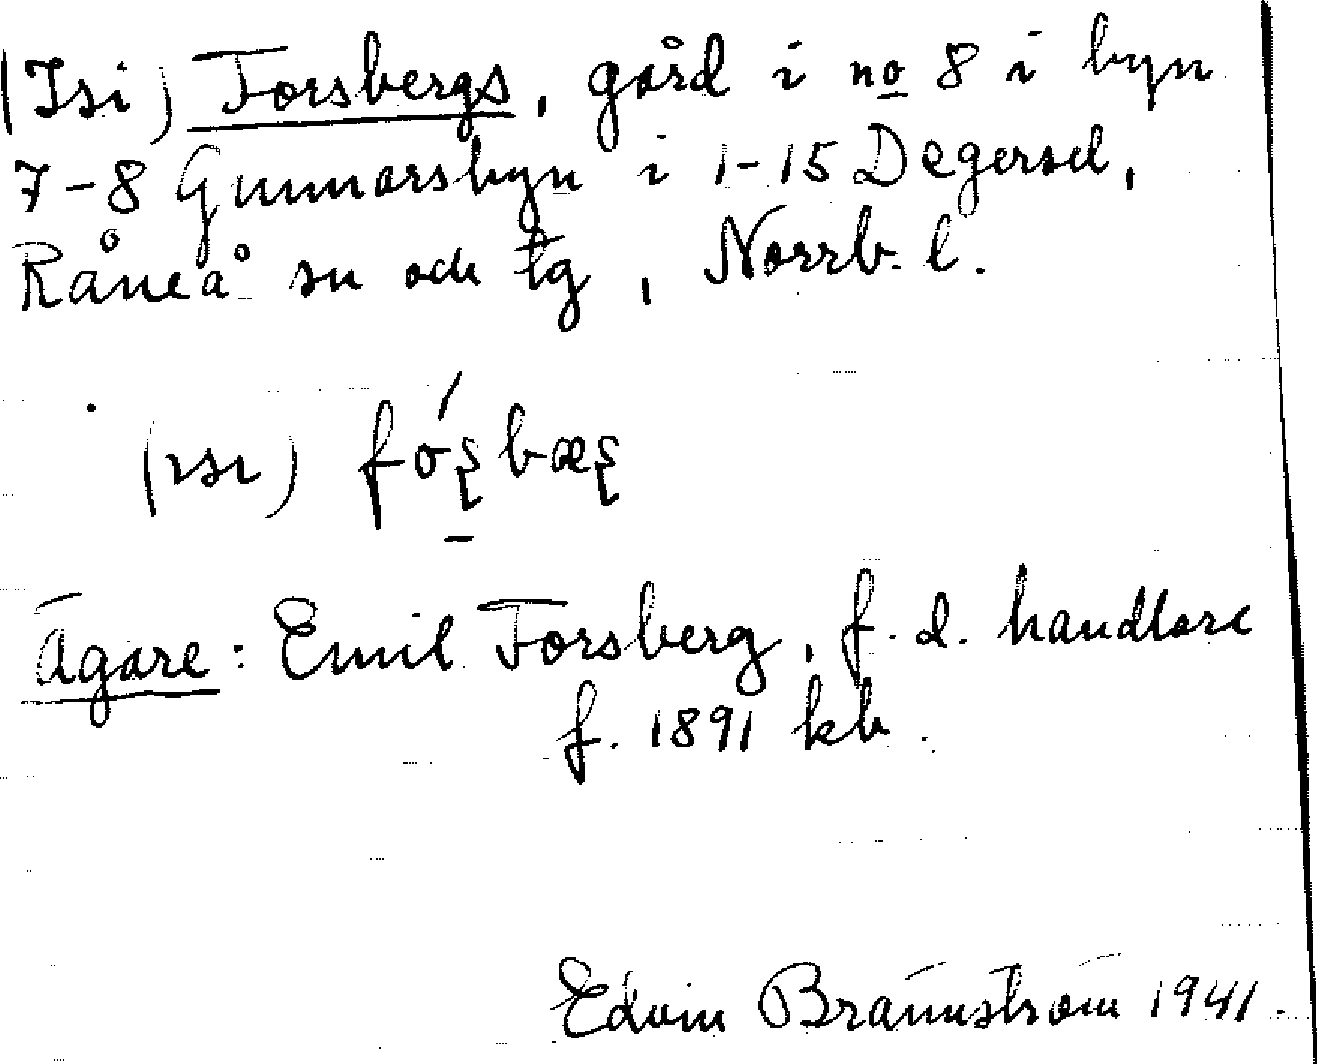 (Isi) Forsbergs, gård i no 8 i byn
7-8 Gunnarsbyn i 1-15 Degersel,
Råneå sn och tg, Norrb. l.
(ısı)
Ägare: Emil Forsberg, f. d. handlare
f. 1891 kb.
Edvin Brännström 1941.